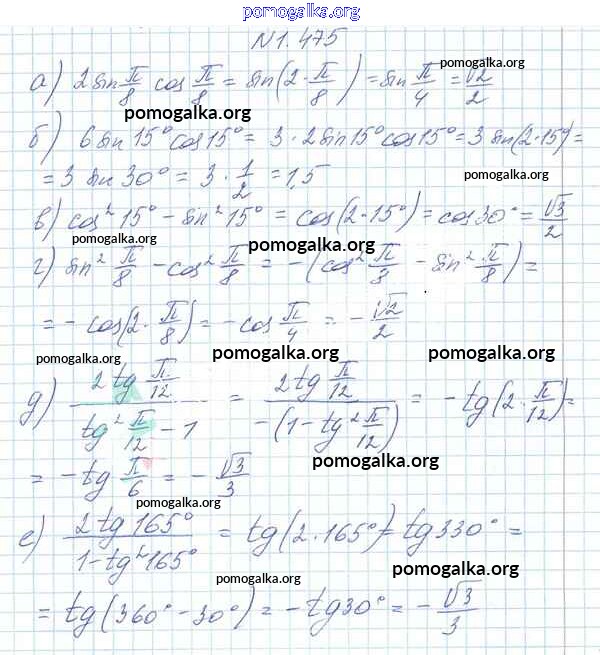 pomogalka.org
N1.475
pomogalka.org
а) 2 sin π/8 cos π/8 = sin(2·π/8) = sin π/4 = √2/2
pomogalka.org
б) 6 sin 15° cos 15° = 3 · 2 sin 15° cos 15° = 3 sin(2·15°) =
= 3 sin 30° = 3 · 1/2 = 1,5
pomogalka.org
pomogalka.org
в) cos² 15° - sin² 15° = cos(2·15°) = cos 30° = √3/2
pomogalka.org
pomogalka.org
г) sin² π/8 - cos² π/8 = -(cos² π/8 - sin² π/8) =
= - cos(2·π/8) = - cos π/4 = - √2/2
pomogalka.org
pomogalka.org
pomogalka.org
д) 2 tg π/12 / (tg² π/12 - 1) = 2 tg π/12 / (-(1 - tg² π/12)) = - tg(2·π/12) =
pomogalka.org
= - tg π/6 = - √3/3
pomogalka.org
е) 2 tg 165° / (1 - tg² 165°) = tg(2·165°) = tg 330° =
pomogalka.org
pomogalka.org
= tg(360° - 30°) = - tg 30° = - √3/3
pomogalka.org